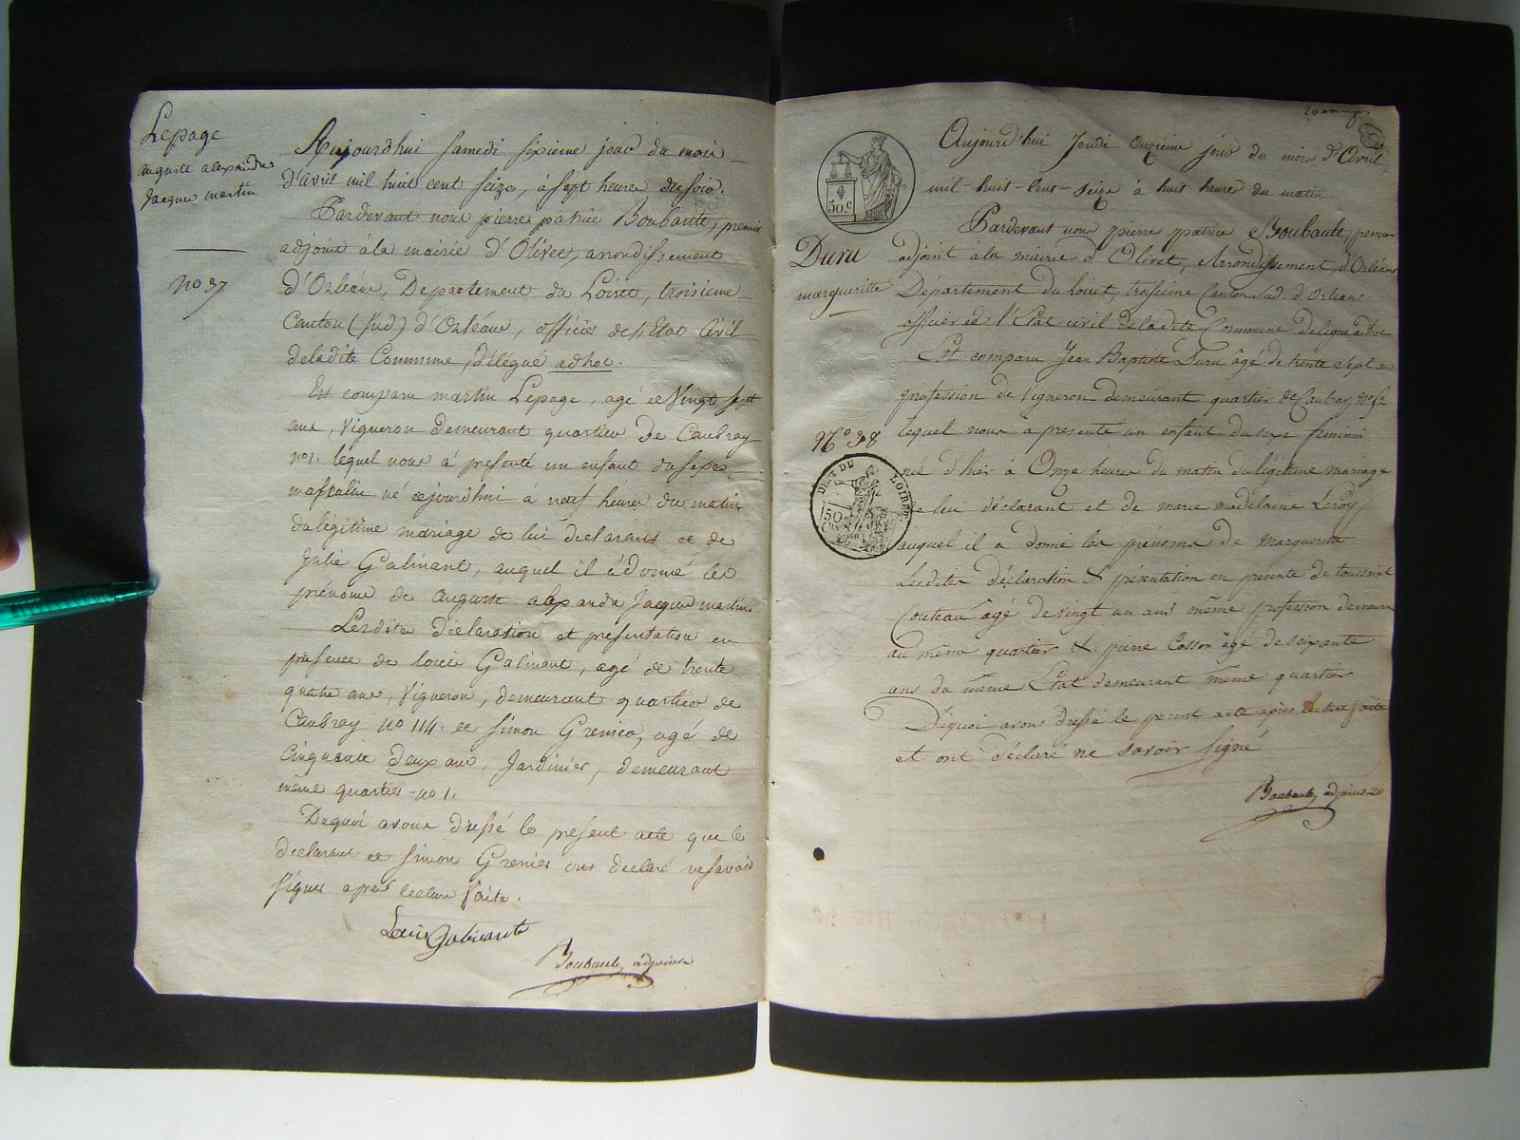 Lepage
auguste alexandre
Jacque martin
No 37
Aujourdhui Samedi sixieme jour du mois
d'avril mil huit cent seize, à sept heures du soir.
Pardevant nous pierre patrice Boubault, premier
adjoint à la mairie d'Olivet, arrondissement
d'Orléans, Departement du Loiret, troisieme
Canton (Sud) d'Orléans, officier de l'Etat Civil
de ladite Commune, délégué adhoc.
Est comparu martin Lepage, agé de Vingt sept
ans, Vigneron demeurant quartier de Caubray
no 1. lequel nous à presenté un enfant du sexe
masculin né aujourdhui à neuf heures du matin
du légitime mariage de lui declarant et de
Julie Galinant, auquel il à donné les
prénoms de auguste alexandre Jacque martin
Lesdites déclaration et presentation en
presence de Louis Galinant, agé de trente
quatre ans, Vigneron, demeurant quartier de
Caubray no 114. et Simon Grenier, agé de
Cinquante deux ans, Jardinier, demeurant
même quartier no 1.
Dequoi avons dressé le présent acte que le
declarant et Simon Grenier ont declaré ne savoir
signer après lecture faite.
Louis Galinant
Boubault, adjoint
50.c
Duru
margueritte
No 38
DEP. DU LOIRET
50
Aujourd'hui Jeudi Onzieme jour du mois d'Avril
mil-huit-Cent-Seize à huit heures du matin
Pardevant nous pierre patrice Boubault, premier
adjoint à la mairie d'Olivet, Arrondissement d'Orléans
Département du Loiret, troisieme Canton Sud d'Orleans
officier de l'Etat civil de ladite Commune delegué adhoc
Est comparu Jean Baptiste Duru âgé de trente sept ans
profession de Vigneron demeurant quartier de Caubray
lequel nous a presenté un enfant du sexe feminin
né d'hier à Onze heures du matin du légitime mariage
de lui déclarant et de marie madelaine Leroy
auquel il a donné les prénoms de Marguerite
Lesdites déclaration & présentation en presence de toussaint
Couteau agé de vingt un ans même profession demeurant
au même quartier & pierre Cosson âgé de soixante
ans du même Etat demeurant même quartier
Dequoi avons dressé le present acte après lecture faite
et ont déclaré ne savoir signé
Boubault, adjoint